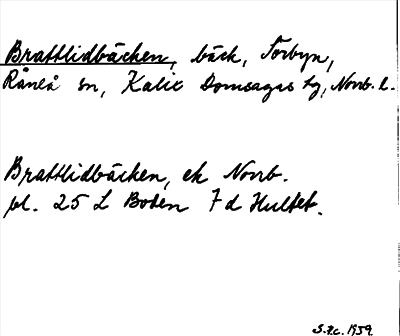 Brattlidbäcken, bäck, Torbyn,
Råneå sn, Kalix Domsagas tg, Norrb. l.
Brattlidbäcken, ek Norrb.
pl. 25 L Boden 7 d Hultet.
1959